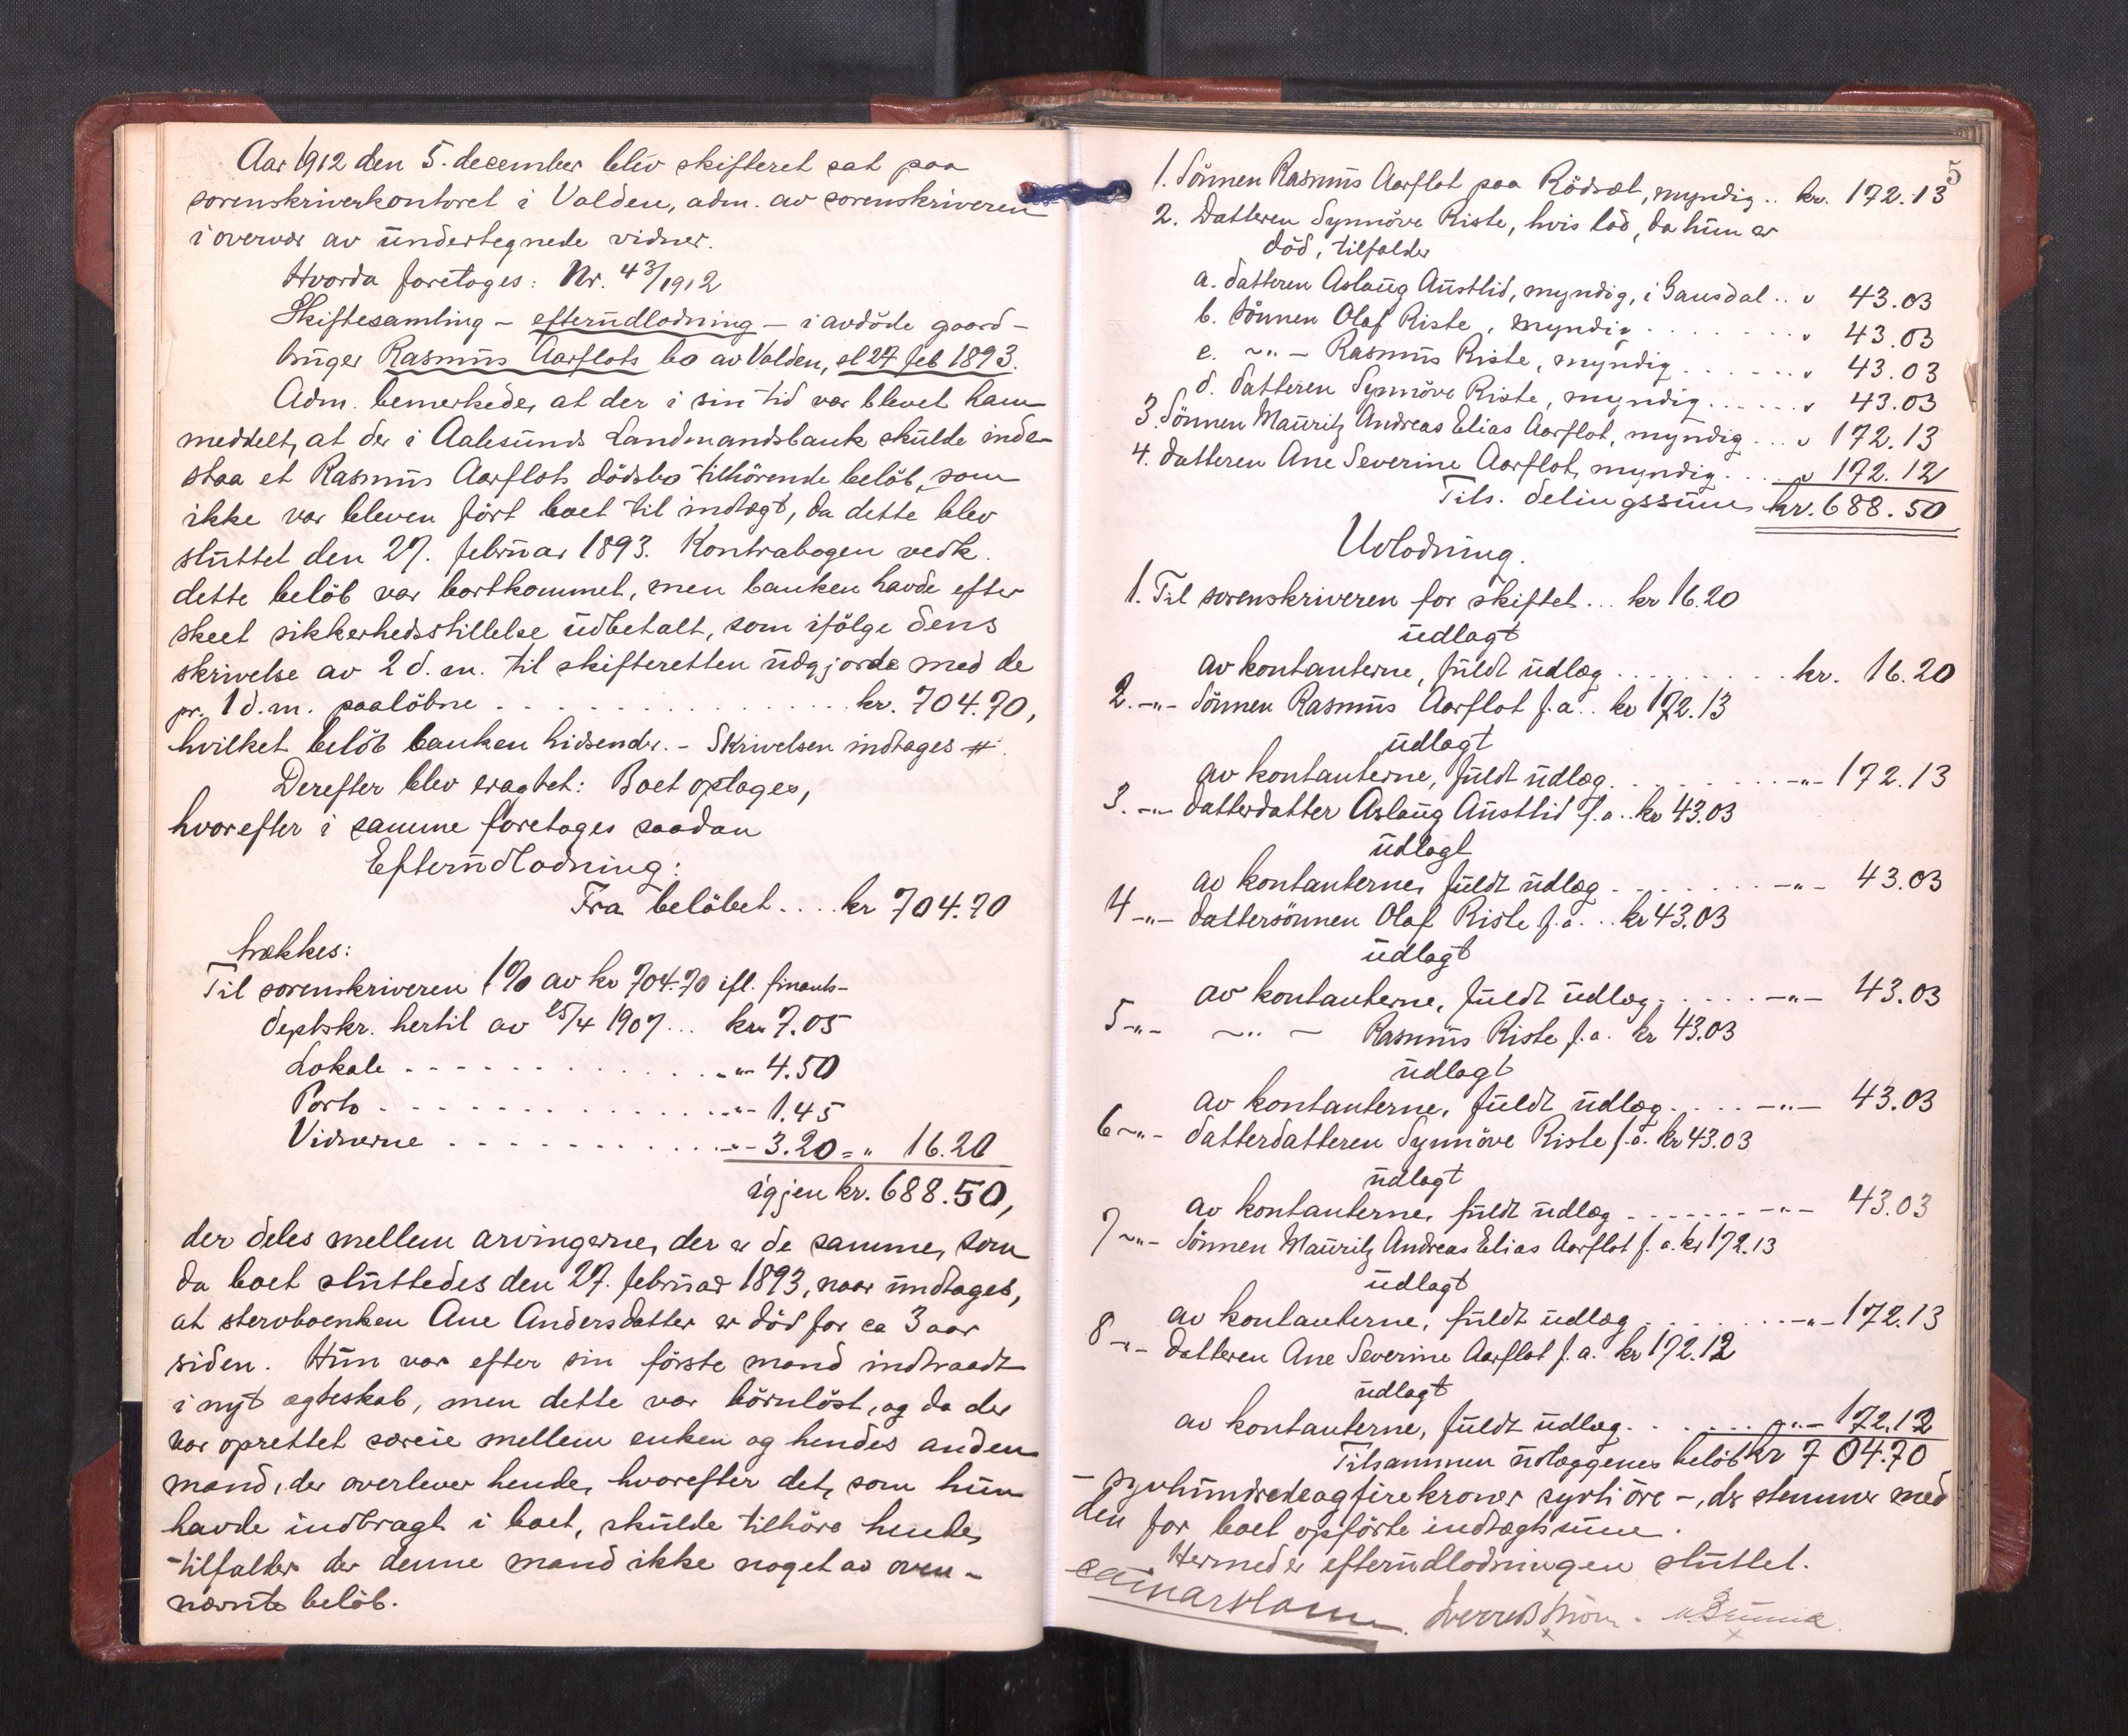 Aar 1912 den 5. december blev skifteret sat paa
sorenskriverkontoret i Volden, adm. av sorenskriveren
i overvær av undertegnede vidner.
Hvorda foretoges: Nr. 43/1912
Skiftesamling - efterudlodning - i avdöde gaard-
bruger Rasmus Aarflots bo av Volden, sl 27 feb 1893.
Adm. bemerkede, at der i sin tid var blevet ham
meddelt, at der i Aalesunds Landmandsbank skulde inde-
staa et Rasmus Aarflots dödsbo tilhörende belöb, som
ikke var bleven fört boet til indtægt, da dette blev
sluttet den 27. februar 1893. Kontrabogen vedk.
dette belöb var bortkommet, men banken havde efter
skeet sikkerhedsstillelse udbetalt, som ifölge dens
skrivelse av 2 d.m. til skifteretten udgjorde med de
pr. 1 d.m. paalöbne . . . . . . . . . . . . . . kr. 704.70,
hvilket belöb banken hidsender. - Skrivelsen indtages #.
Derefter blev eragtet: Boet optages,
hvorefter i samme foretoges saadan
Efterudlodning:
Fra belöbet.... kr 704.70
trækkes:
Til sorenskriveren 1% av kr 704.70 ifl. finants-
deptskr. hertil av 25/4 1907... kr. 7.05
Lokale . . . . . . . . . . . . . -"- 4.50
Porto . . . . . . . . . . . . . . -"- 1.45
Vidnerne . . . . . . . . . . . . -"- 3.20 = " 16.20
igjen kr. 688.50,
der deles mellem arvingerne, der er de samme, som
da boet sluttedes den 27. februar 1893, naar undtages,
at stervboenken Ane Andersdatter er död for ca 3 aar
siden. Hun var efter sin förste mand indtraadt
i nyt egteskab, men dette var börnlöst, og da der
var oprettet særeie mellem enken og hendes anden
mand, der overlever hende, hvorefter det, som hun
havde indbragt i boet, skulde tilhöre hende,
tilfalder der denne mand ikke noget av oven-
nævnte belöb.
5
1. Sönnen Rasmus Aarflot paa Rödsæt, myndig .. kr. 172.13
2. Datteren Synnöve Riste, hvis lod, da hun er
död, tilfalder
a. datteren Aslaug Austlid, myndig, i Gausdal .. " 43.03
b. Sönnen Olaf Riste, myndig . . . . . . . " 43.03
c. -"- Rasmus Riste, myndig . . . . . . " 43.03
d. datteren Synnöve Riste, myndig . . . . . . " 43.03
3. Sönnen Mauritz Andreas Elias Aarflot, myndig ... " 172.13
4. datteren Ane Severine Aarflot, myndig. . . . " 172.12
Tils. delingssum kr. 688.50
Udlodning.
1. Til sorenskriveren for skiftet... kr 16.20
udlagt
av kontanterne, fuldt udlæg . . . . . . . . . kr. 16.20
2. -"- Sönnen Rasmus Aarflot f.a.. kr 172.13
udlagt
av kontanterne, fuldt udlæg. . . . . . . . -"- 172.13
3. -"- Datterdatter Aslaug Austlid f.a.. kr 43.03
udlagt
av kontanterne, fuldt udlæg. . . . . . . . -"- 43.03
4 -"- dattersönnen Olaf Riste f.a... kr 43.03
udlagt
av kontanterne, fuldt udlæg. . . . . -"- 43.03
5 -"- -"- Rasmus Riste f.a. kr 43.03
udlagt
av kontanterne, fuldt udlæg. . . . -"- 43.03
6 -"- datterdatteren Synnöve Riste f.a. kr 43.03
udlagt
av kontanterne, fuldt udlæg . . . . . . -"- 43.03
7 -"- Sönnen Mauritz Andreas Elias Aarflot f.a. kr 172.13
udlagt
av kontanterne, fuldt udlæg . . . . . . . -"- 172.13
8 -"- datteren Ane Severine Aarflot f.a. kr 172.12
udlagt
av kontanterne, fuldt udlæg. . . . . . -"- 172.12
Tilsammen udlæggenes belöb kr 704.70
- syvhundredeogfire kroner syvti öre -, der stemmer med
den for boet opförte indtægtssum.
Hermed er efterudlodningen sluttet.